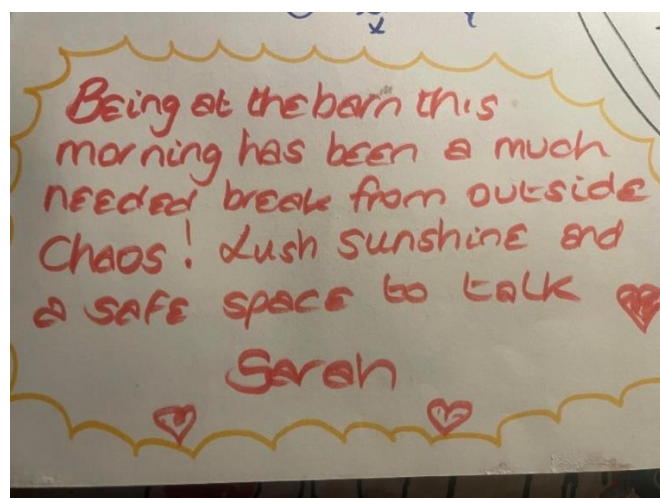 Being at the barn this
morning has been a much
needed break from outside
Chaos! Lush sunshine and
a safe space to talk
Sarah